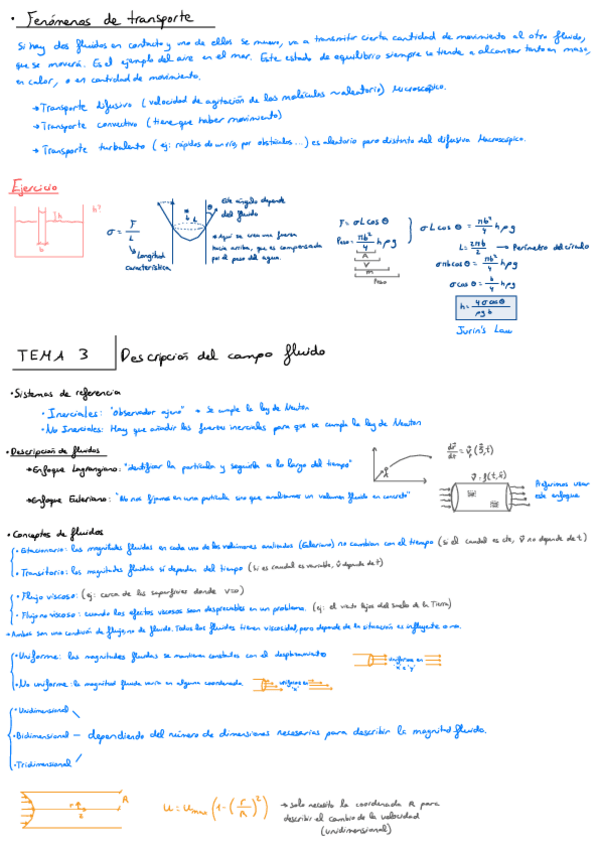 • Fenómenos de transporte
Si hay dos fluidos en contacto y uno de ellos se mueve, va a transmitir cierta cantidad de movimiento al otro fluido,
que se moverá. Es el ejemplo del aire en el mar. Este estado de equilibrio siempre se tiende a alcanzar tanto en masa,
en calor, o en cantidad de movimiento.
→ Transporte difusivo (velocidad de agitación de las moléculas ~ aleatorio) Microscópico.
→ Transporte convectivo (tiene que haber movimiento)
→ Transporte turbulento (ej: rápidos de un río por obstáculos...) es aleatorio pero distinto del difusivo Macroscópico.
Ejercicio
h?
h
b
σ = T/L
↳ Longitud característica
θ
Este ángulo depende del fluido
• Aquí se crea una fuerza hacia arriba, que es compensada por el peso del agua.
T = σL cos θ
Peso = πb²/4 hρg
A
V
m
Peso
σL cos θ = πb²/4 hρg
L = 2πb/2 → Perímetro del círculo
σπb cos θ = πb²/4 hρg
σ cos θ = b/4 hρg
h = 4σ cos θ / ρgb
Jurin's Law
TEMA 3 Descripción del campo fluido
• Sistemas de referencia
• Inerciales: "observador ajeno" → Se cumple la ley de Newton
• No Inerciales: Hay que añadir las fuerzas inerciales para que se cumpla la ley de Newton
• Descripción de fluidos
→ Enfoque Lagrangiano: "identificar la partícula y seguirla a lo largo del tiempo"
→ Enfoque Euleriano: "No nos fijamos en una partícula sino que analizamos un volumen fluido en concreto"
Preferimos usar este enfoque
• Conceptos de fluidos
• Estacionario: las magnitudes fluidas en cada uno de los volúmenes analizados (Euleriano) no cambian con el tiempo (si el caudal es cte, v̄ no depende de t)
• Transitorio: las magnitudes fluidas sí dependen del tiempo (si es caudal es variable, v̄ depende de t)
• Flujo viscoso: (ej: cerca de las superficies donde v≈0)
• Flujo no viscoso: cuando los efectos viscosos sean despreciables en un problema. (ej: el viento lejos del suelo de la Tierra)
• Ambos son una condición de flujo no de fluido. Todos los fluidos tienen viscosidad, pero depende de la situación es influyente o no.
• Uniforme: las magnitudes fluidas se mantienen constantes con el desplazamiento
uniforme en "x" e "y"
• No uniforme: la magnitud fluida varía en alguna coordenada
uniforme en "x"
• Unidimensional
• Bidimensional — dependiendo del número de dimensiones necesarias para describir la magnitud fluida.
• Tridimensional
r
z
R
U = Umax (1 - (r/R)²)
→ solo necesito la coordenada R para
describir el cambio de la velocidad
(unidimensional)